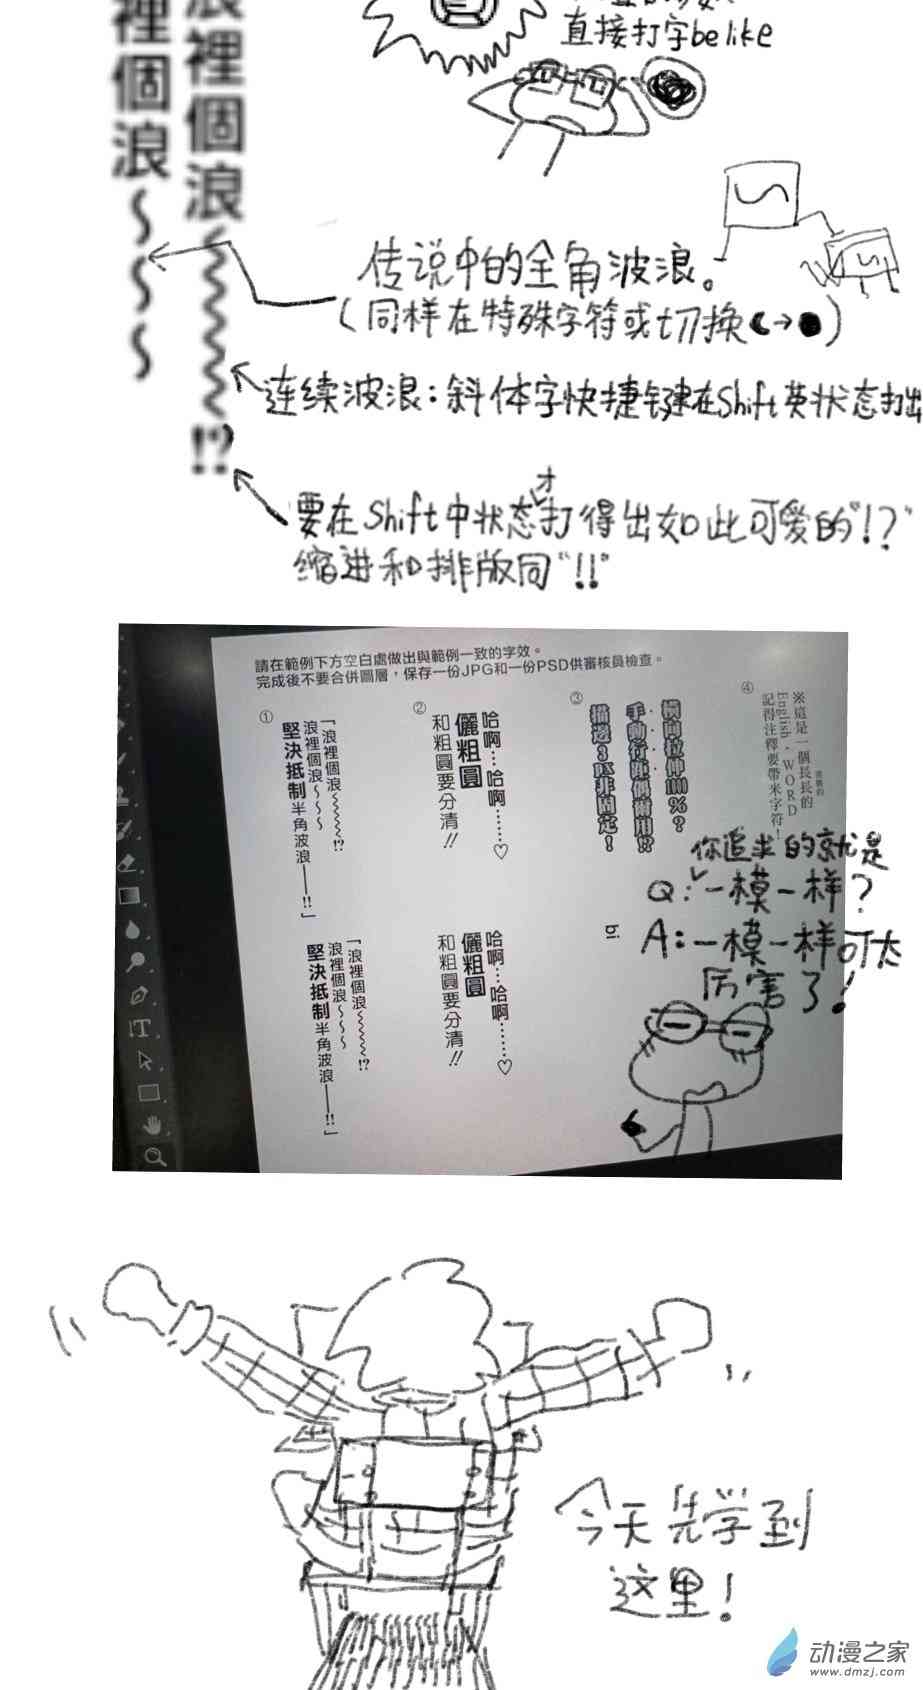 直接打字be like
浪裡個浪～～～～～!?
裡個浪～～～
传说中的全角波浪。
(同样在特殊字符或切换☾→●)
连续波浪:斜体字快捷键在Shift英状态打出
要在Shift中状态才打得出如此可爱的"!?"
缩进和排版同"!!"
請在範例下方空白處做出與範例一致的字效。
完成後不要合併圖層，保存一份JPG和一份PSD供審核員檢查。
①
「浪裡個浪～～～～～!?
浪裡個浪～～～
堅決抵制半角波浪——!!」
②
哈啊…哈啊………♡
儷粗圓
和粗圓要分清!!
③
橫向拉伸100%？
手動行距偶爾用!?
描邊3PX非固定！
④
※這是一個長長的
English．WORD
記得注釋要帶米字符！
「浪裡個浪～～～～～!?
浪裡個浪～～～
堅決抵制半角波浪——!!」
哈啊…哈啊………♡
儷粗圓
和粗圓要分清!!
bi
你追求的就是
Q:一模一样？
A:一模一样可太
厉害了！
T
今天先学到
这里！
动漫之家
www.dmzj.com